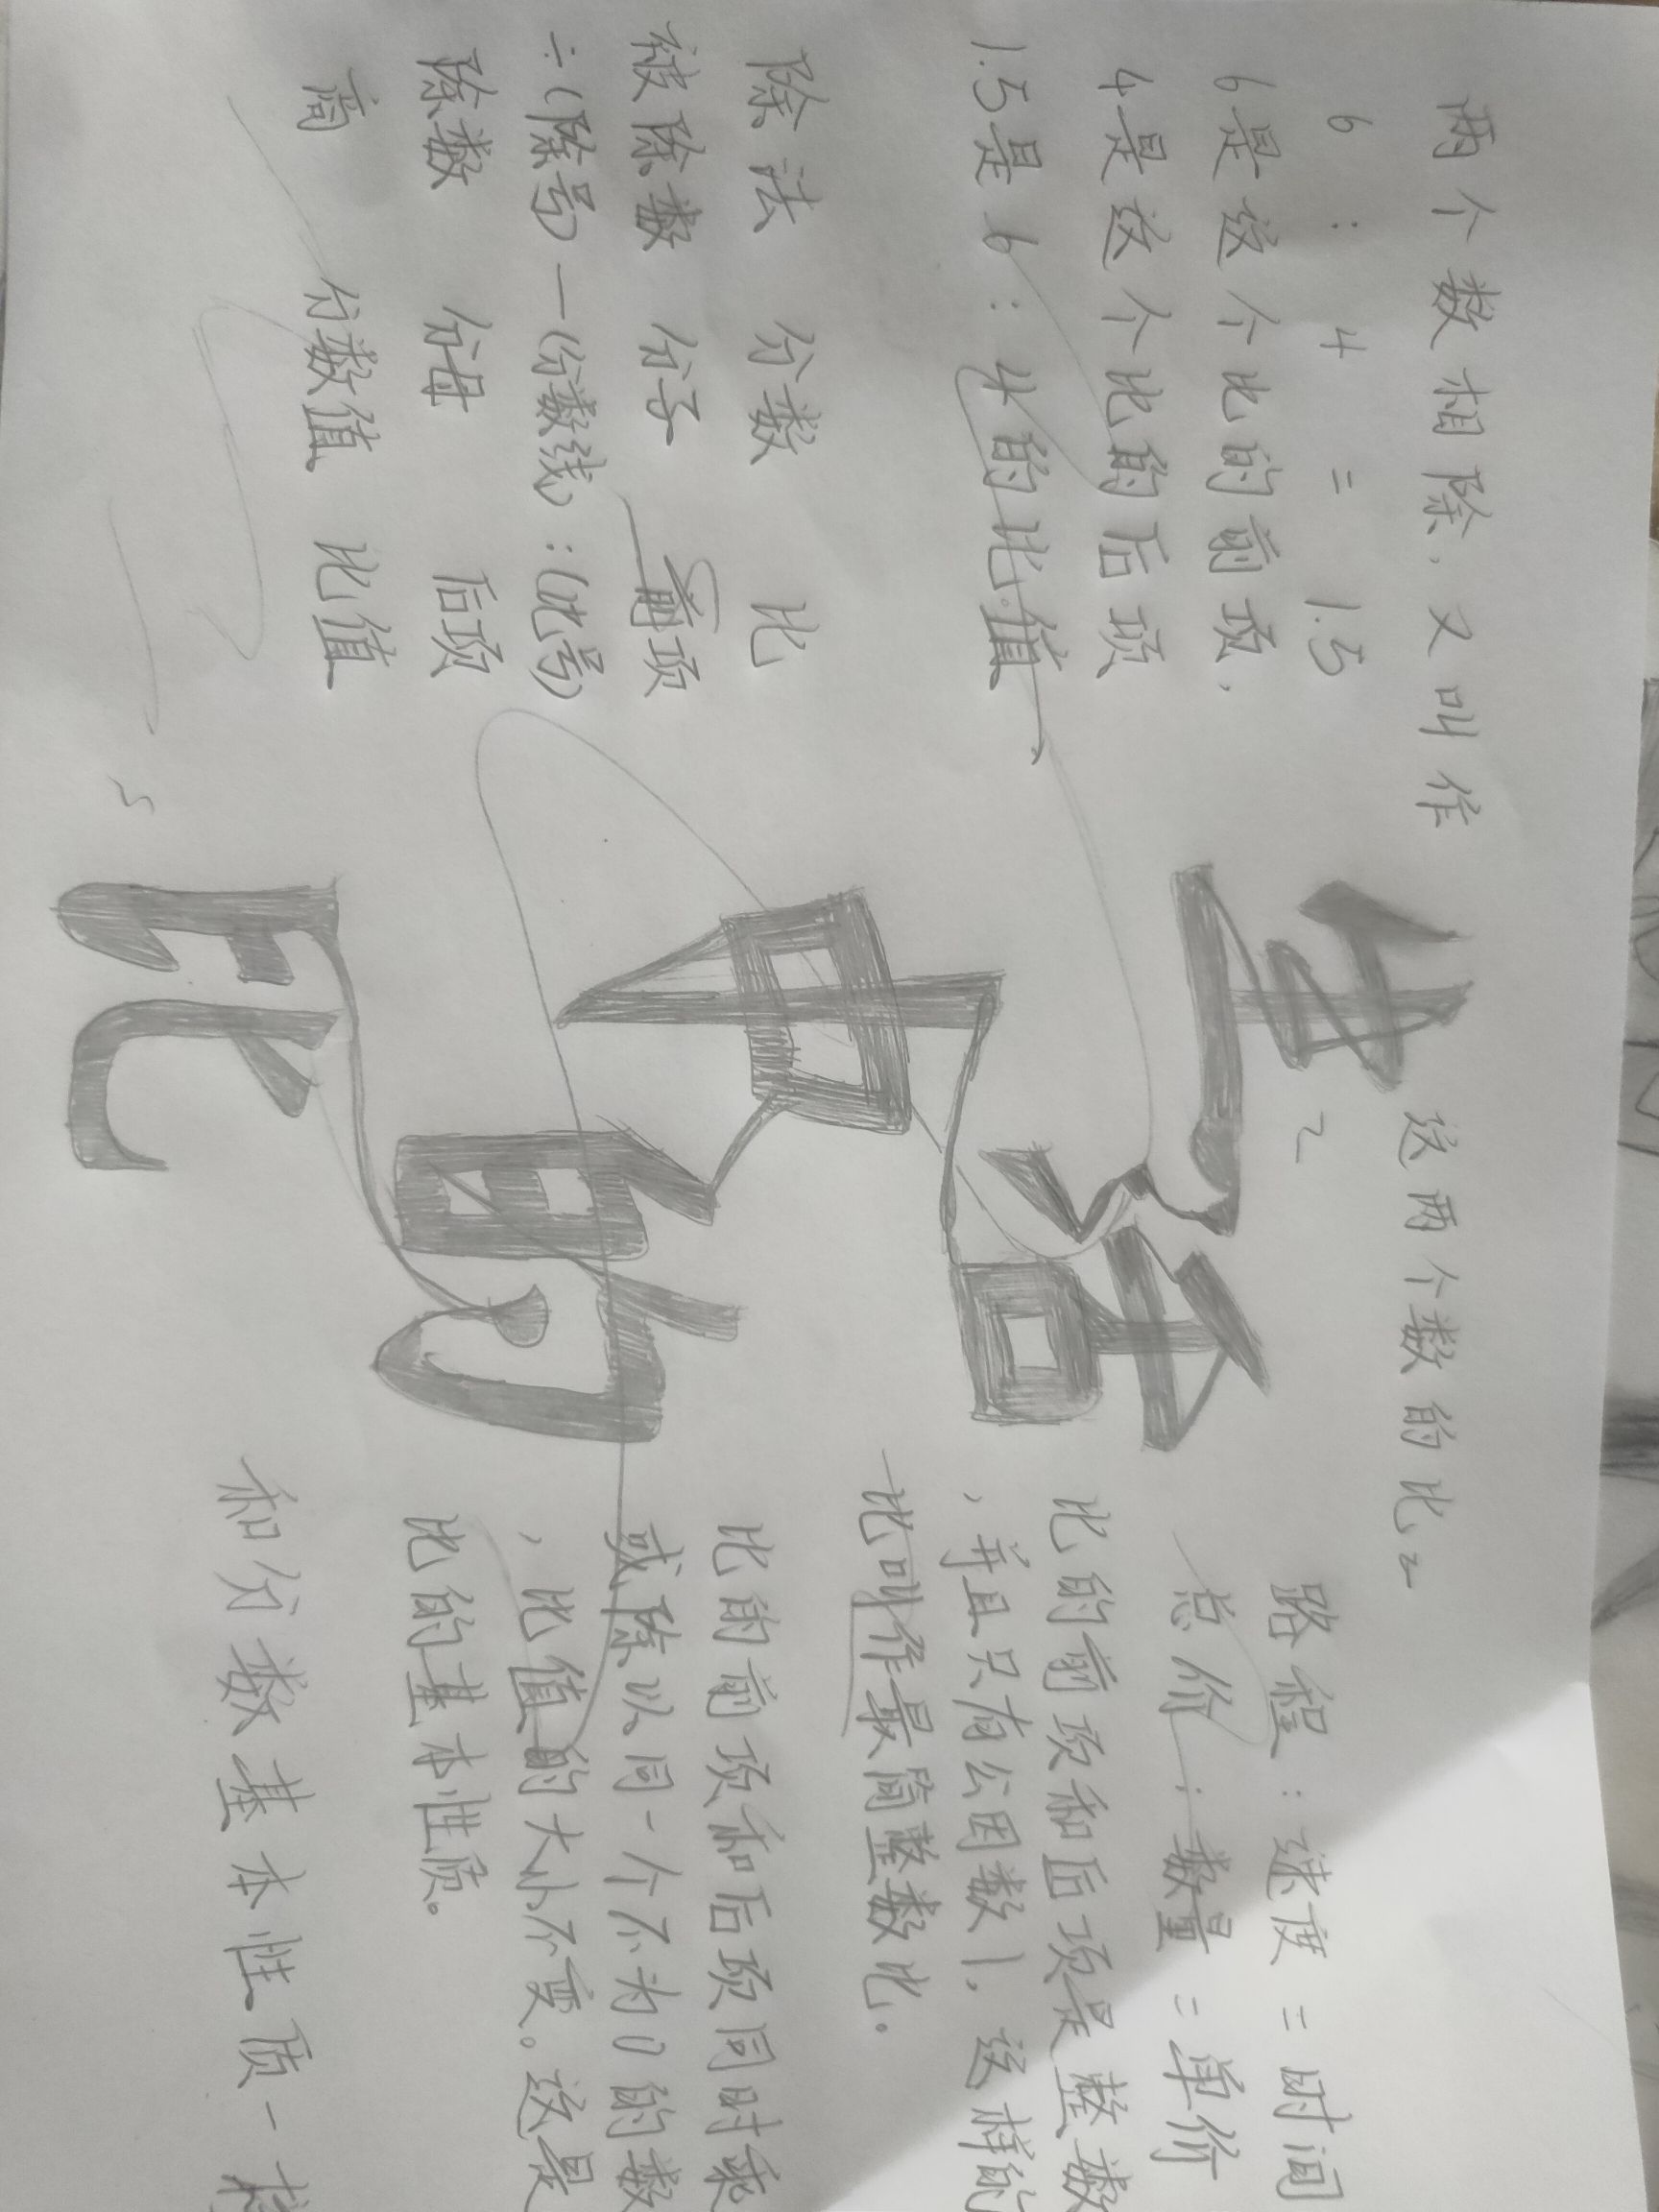 两个数相除，又叫作这两个数的比
6 : 4 = 1.5
6是这个比的前项，
4是这个比的后项
1.5是6:4的比值
除法 分数 比
被除数 分子 前项
÷(除号) —(分数线) :(比号)
除数 分母 后项
商 分数值 比值
生活
中的
比
路程 : 速度 = 时间
总价 : 数量 = 单价
比的前项和后项是整数
，并且只有公因数1，这样的
比叫作最简整数比。
比的前项和后项同时乘
或除以同一个不为0的数
，比值的大小不变。这是
比的基本性质。
和分数基本性质一样